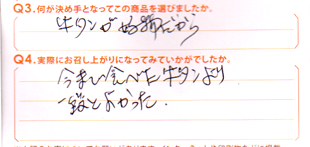 Q3.何が決め手となってこの商品を選びましたか。
牛タンが好物だから
Q4.実際にお召し上がりになってみていかがでしたか。
今まで食べた牛タンより
一番よかった.